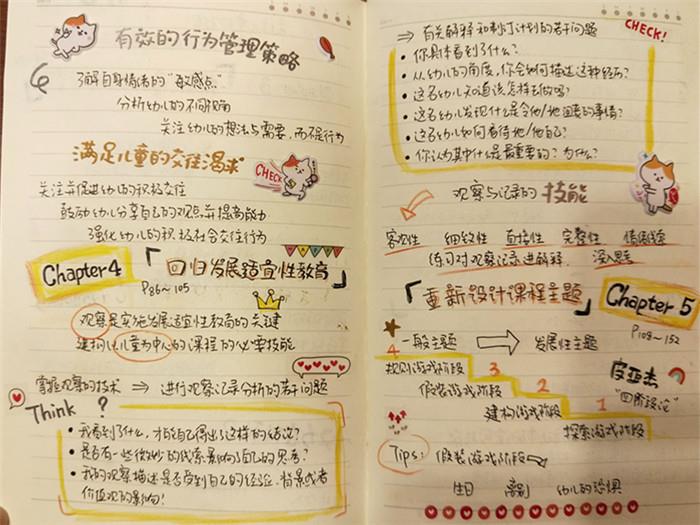 有效的行为管理策略
了解自身情绪的"敏感点"
分析幼儿的不同视角
关注幼儿的想法与需要，而不是行为
满足儿童的交往渴求
CHECK!
关注并促进幼儿的积极交往
鼓励幼儿分享自己的观点并提高能力
强化幼儿的积极社会交往行为
Chapter 4
「回归发展适宜性教育」
P86~105
观察是实施发展适宜性教育的关键
建构以儿童为中心的课程的必要技能
掌握观察的技术 ⇒ 进行观察记录分析的若干问题
Think ?
• 我看到了什么，才能自己得出了这样的结论？
• 是否有一些微妙的线索影响了自己的思考？
• 我的观察描述是否受到自己的经验、背景或者
价值观的影响！
⇒ 有关解释和制订计划的若干问题
CHECK!
• 你具体看到了什么？
• 从幼儿的角度，你会如何描述这种经历？
• 这名幼儿知道该怎样去做吗？
• 这名幼儿发现什么是令他/她沮丧的事情？
• 这名幼儿如何看待他/她自己？
• 你认为其中什么是最重要的？为什么？
观察与记录的技能
CHECK
客观性 细致性 直接性 完整性 情绪线索
练习对观察记录进行解释 深入思考
「重新设计课程主题」
Chapter 5
P108~152
一般主题 ⇒ 发展性主题
4
规则游戏阶段
3
假装游戏阶段
2
建构游戏阶段
1
探索游戏阶段
皮亚杰
"四阶段论"
Tips: 假装游戏阶段
生日 离别 幼儿的恐惧